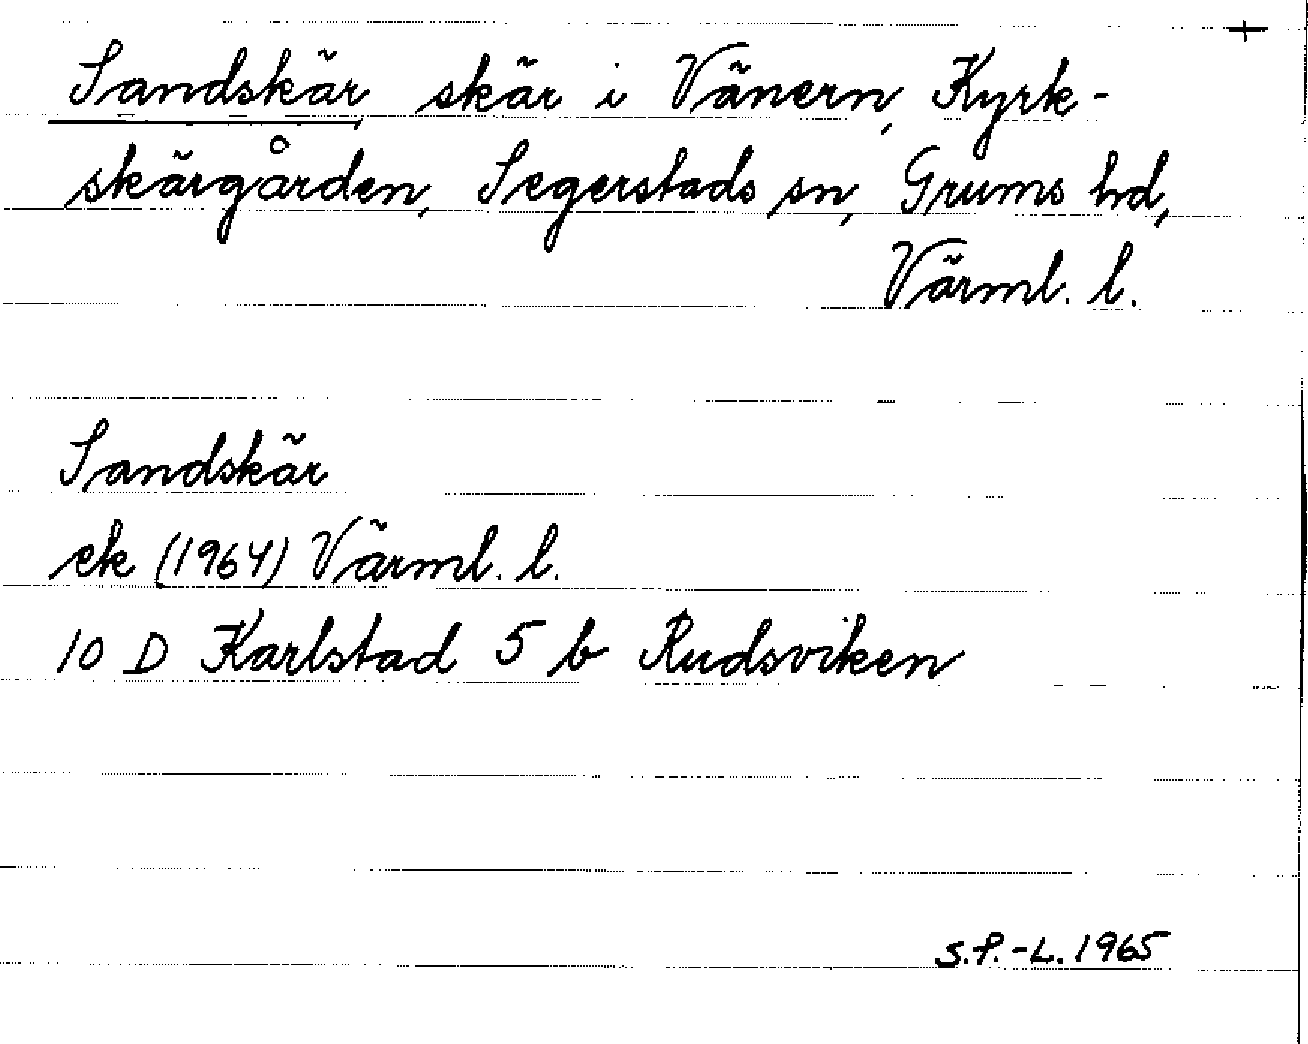 +
Sandskär, skär i Vänern, Kyrk-
skärgården, Segerstads sn, Grums hd,
Värml. l.
Sandskär
ek (1964) Värml. l.
10 D Karlstad 5 b Rudsviken
S.P.-L. 1965